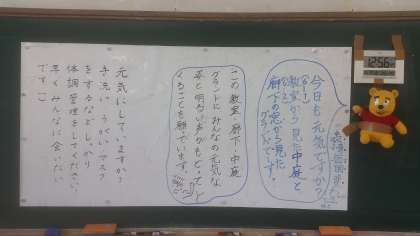 今日も元気ですか？
教室から見た中庭と
廊下の窓から見た
グランドです。
この教室・廊下・中庭
グランドに みんなの元気な
姿と明るい声がもどってく
ることを願っています。
元気にしてますか？
手洗い うがい マスク
をするなどしっかり
体調管理をしてください。
早くみんなに会いたい
です。
12:56